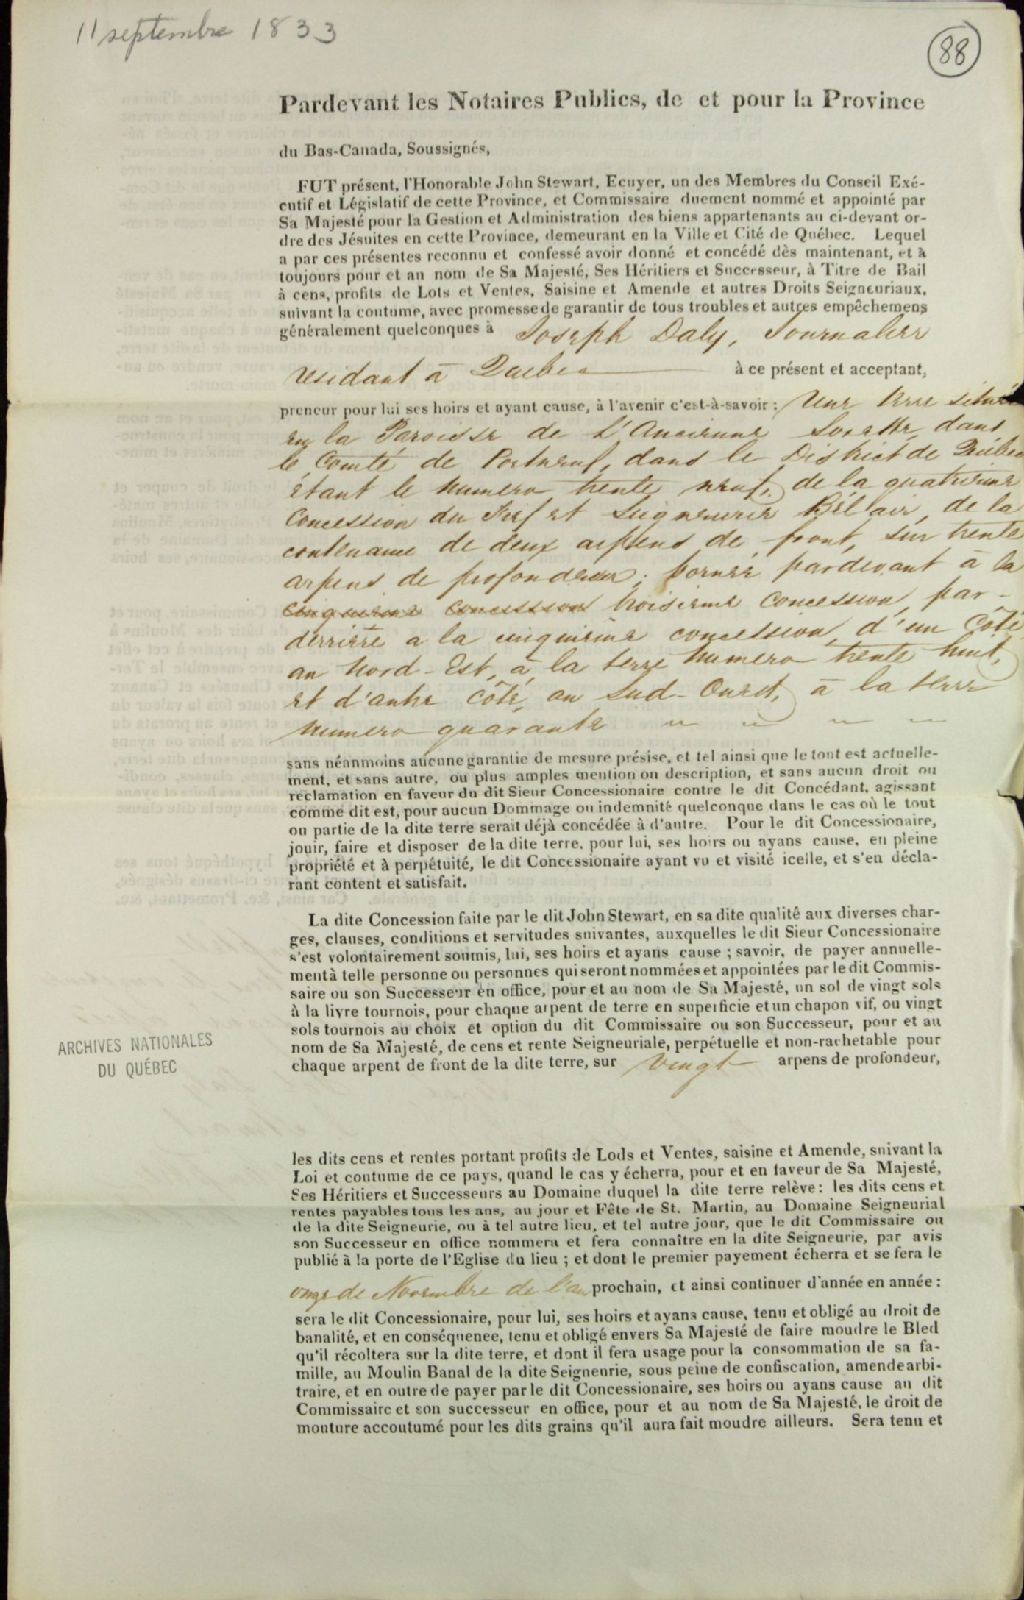 11 septembre 1833
88
Pardevant les Notaires Publics, de et pour la Province
du Bas-Canada, Soussignés,
FUT présent, l'Honorable John Stewart, Ecuyer, un des Membres du Conseil Exé-
cutif et Législatif de cette Province, et Commissaire duement nommé et appointé par
Sa Majesté pour la Gestion et Administration des biens appartenants au ci-devant or-
dre des Jésuites en cette Province, demeurant en la Ville et Cité de Québec. Lequel
a par ces présentes reconnu et confessé avoir donné et concédé dès maintenant, et à
toujours pour et au nom de Sa Majesté, Ses Héritiers et Successeur, à Titre de Bail
à cens, profits de Lots et Ventes, Saisine et Amende et autres Droits Seigneuriaux,
suivant la coutume, avec promesse de garantir de tous troubles et autres empêchemens
généralement quelconques à Joseph Daly, Journalier
residant à Quebec à ce présent et acceptant,
preneur pour lui ses hoirs et ayant cause, à l'avenir c'est-à-savoir : Une terre située
en la Paroisse de L'Ancienne Lorette, dans
le Comté de Portneuf, dans le District de Québec
étant le numero trente neuf, de la quatrieme
Concession du Fief et Seigneurie Bélair, de la
contenance de deux arpens de front, sur trente
arpens de profondeur, bornée pardevant à la
cinquieme concession troisieme concession, par-
derrière a la cinquieme concession, d'un Côté
au Nord-Est, à la terre numero trente huit,
et d'autre Côté, au Sud-Ouest, à la terre
numero quarante
sans néanmoins aucune garantie de mesure présise, et tel ainsi que le tout est actuelle-
ment, et sans autre, ou plus amples mention ou description, et sans aucun droit ou
réclamation en faveur du dit Sieur Concessionaire contre le dit Concédant, agissant
comme dit est, pour aucun Dommage ou indemnité quelconque dans le cas où le tout
ou partie de la dite terre serait déjà concédée à d'autre. Pour le dit Concessionaire,
jouir, faire et disposer de la dite terre, pour lui, ses hoirs ou ayans cause, en pleine
propriété et à perpétuité, le dit Concessionaire ayant vu et visité icelle, et s'en décla-
rant content et satisfait.
La dite Concession faite par le dit John Stewart, en sa dite qualité aux diverses char-
ges, clauses, conditions et servitudes suivantes, auxquelles le dit Sieur Concessionaire
s'est volontairement soumis, lui, ses hoirs et ayans cause ; savoir, de payer annuelle-
ment à telle personne ou personnes qui seront nommées et appointées par le dit Commis-
saire ou son Successeur en office, pour et au nom de Sa Majesté, un sol de vingt sols
à la livre tournois, pour chaque arpent de terre en superficie et un chapon vif, ou vingt
sols tournois au choix et option du dit Commissaire ou son Successeur, pour et au
nom de Sa Majesté, de cens et rente Seigneuriale, perpétuelle et non-rachetable pour
chaque arpent de front de la dite terre, sur vingt arpens de profondeur,
ARCHIVES NATIONALES
DU QUÉBEC
les dits cens et rentes portant profits de Lods et Ventes, saisine et Amende, suivant la
Loi et coutume de ce pays, quand le cas y écherra, pour et en faveur de Sa Majesté,
Ses Héritiers et Successeurs au Domaine duquel la dite terre relève : les dits cens et
rentes payables tous les ans, au jour et Fête de St. Martin, au Domaine Seigneurial
de la dite Seigneurie, ou à tel autre lieu, et tel autre jour, que le dit Commissaire ou
son Successeur en office nommera et fera connaître en la dite Seigneurie, par avis
publié à la porte de l'Eglise du lieu ; et dont le premier payement écherra et se fera le
onze de Novembre de l'an prochain, et ainsi continuer d'année en année :
sera le dit Concessionaire, pour lui, ses hoirs et ayans cause, tenu et obligé au droit de
banalité, et en conséquence, tenu et obligé envers Sa Majesté de faire moudre le Bled
qu'il récoltera sur la dite terre, et dont il fera usage pour la consommation de sa fa-
mille, au Moulin Banal de la dite Seigneurie, sous peine de confiscation, amende arbi-
traire, et en outre de payer par le dit Concessionaire, ses hoirs ou ayans cause au dit
Commissaire et son successeur en office, pour et au nom de Sa Majesté, le droit de
monture accoutumé pour les dits grains qu'il aura fait moudre ailleurs. Sera tenu et